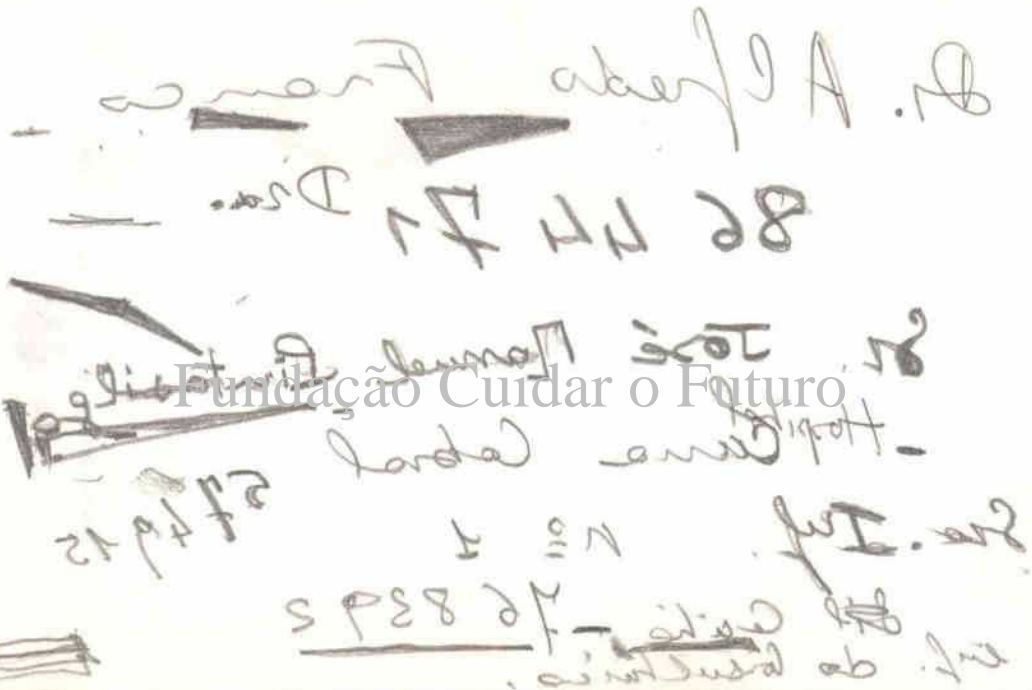 Dr. Alfredo Franco
Dra.
86 44 71
Sr. José Manuel
Fundação Cuidar o Futuro
- Hospital Curra Cabral
574915
Sra. Inf. nº 1
- 768392
inf. do Consultório.